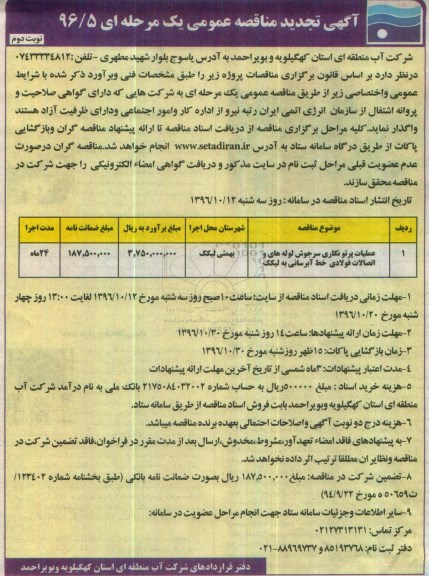 آگهی تجدید مناقصه عمومی یک مرحله ای ۹۶/۵
نوبت دوم
شرکت آب منطقه ای استان کهگیلویه و بویراحمد به آدرس یاسوج بلوار شهید مطهری - تلفن: ۰۷۴۳۳۳۳۴۸۱۲
درنظر دارد بر اساس قانون برگزاری مناقصات پروژه زیر را طبق مشخصات فنی وبرآورد ذکر شده با شرایط
عمومی واختصاصی زیر از طریق مناقصه عمومی یک مرحله ای به شرکت هایی که دارای گواهی صلاحیت و
پروانه اشتغال از سازمان انرژی اتمی ایران رتبه نیرو از اداره کار وامور اجتماعی ودارای ظرفیت آزاد هستند
واگذار نماید.کلیه مراحل برگزاری مناقصه از دریافت اسناد مناقصه تا ارائه پیشنهاد مناقصه گران وبازگشایی
پاکات از طریق درگاه سامانه ستاد به آدرس www.setadiran.ir انجام خواهد شد.مناقصه گران درصورت
عدم عضویت قبلی مراحل ثبت نام در سایت مذکور و دریافت گواهی امضاء الکترونیکی را جهت شرکت در
مناقصه محقق سازند.
تاریخ انتشار اسناد مناقصه در سامانه : روز سه شنبه ۱۳۹۶/۱۰/۱۲
ردیف موضوع مناقصه شهرستان محل اجرا مبلغ برآورد به ریال مبلغ ضمانت نامه مدت اجرا
۱ عملیات پرتو نگاری سرجوش لوله های و اتصالات فولادی خط آبرسانی به لیکک بهمئی لیکک ۳,۷۵۰,۰۰۰,۰۰۰ ۱۸۷,۵۰۰,۰۰۰ ۲۴ماه
۱-مهلت زمانی دریافت اسناد مناقصه از سایت: ساعت ۱۰صبح روز سه شنبه مورخ ۱۳۹۶/۱۰/۱۲ لغایت ۱۳:۰۰ روز چهار
شنبه مورخ ۱۳۹۶/۱۰/۲۰
۲-مهلت زمان ارائه پیشنهادها: ساعت ۱۴ روز شنبه مورخ ۱۳۹۶/۱۰/۳۰
۳-زمان بازگشایی پاکات: ۱۵ظهر روزشنبه مورخ ۱۳۹۶/۱۰/۳۰
۴-مدت اعتبار پیشنهادات: ۳ماه شمسی از تاریخ آخرین مهلت ارائه پیشنهادات
۵-هزینه خرید اسناد : مبلغ ۵۰۰۰۰۰ریال به حساب شماره ۲۱۷۵۰۸۴۰۳۲۰۰۲ بانک ملی به نام درآمد شرکت آب
منطقه ای استان کهگیلویه وبویراحمد بابت فروش اسناد مناقصه از طریق سامانه ستاد.
۶-هزینه درج دو نوبت آگهی واصلاحات احتمالی بعهده برنده مناقصه میباشد.
۷-به پیشنهادهای فاقد امضاء تعهدآور،مشروط،مخدوش،ارسال بعد از مدت مقرر در فراخوان،فاقد تضمین شرکت در
مناقصه ونظایر ان مطلقا ترتیب اثر داده نخواهد شد.
۸-تضمین شرکت در مناقصه: مبلغ ۱۸۷,۵۰۰,۰۰۰ ریال بصورت ضمانت نامه بانکی (طبق بخشنامه شماره ۱۲۳۴۰۲/
ت۵۰۶۵۹ ه مورخ ۹۴/۹/۲۲)
۹-سایر اطلاعات وجزئیات سامانه ستاد جهت انجام مراحل عضویت در سامانه:
مرکز تماس: ۰۲۱۲۷۳۱۳۱۳۱
دفتر ثبت نام: ۸۵۱۹۳۷۶۸ و ۸۸۹۶۹۷۳۷-۰۲۱
دفتر قراردادهای شرکت آب منطقه ای استان کهگیلویه وبویراحمد